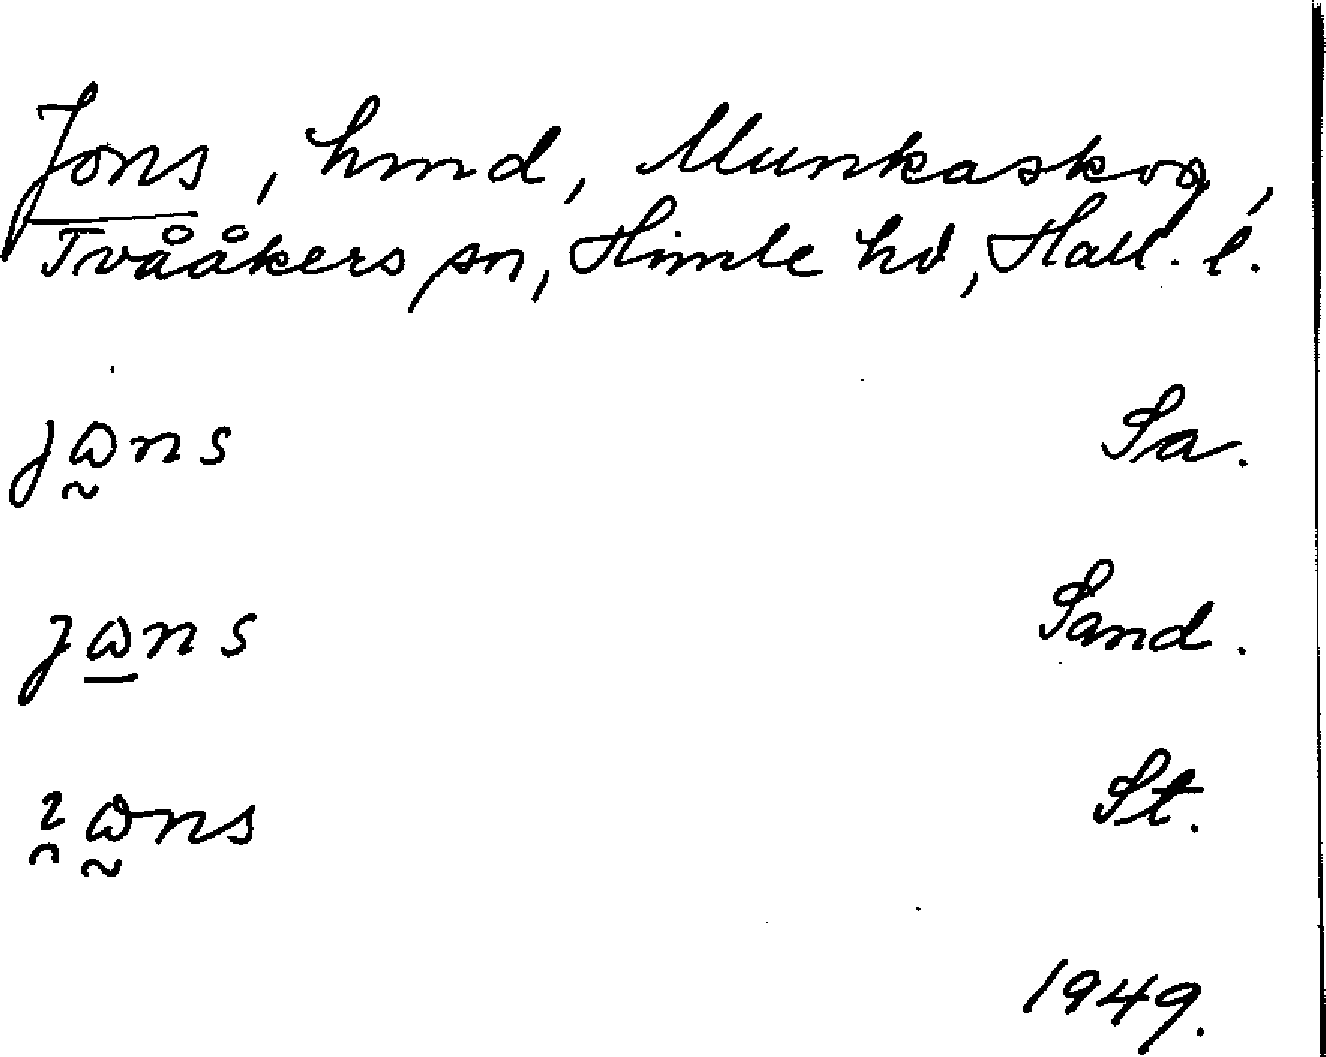 Jons, hmd, Munkaskog,
Tvååkers sn, Himle hd, Hall. l.
jω̰ns Sa.
jω̱ns Sand.
ı̯ω̰ns St.
1949.